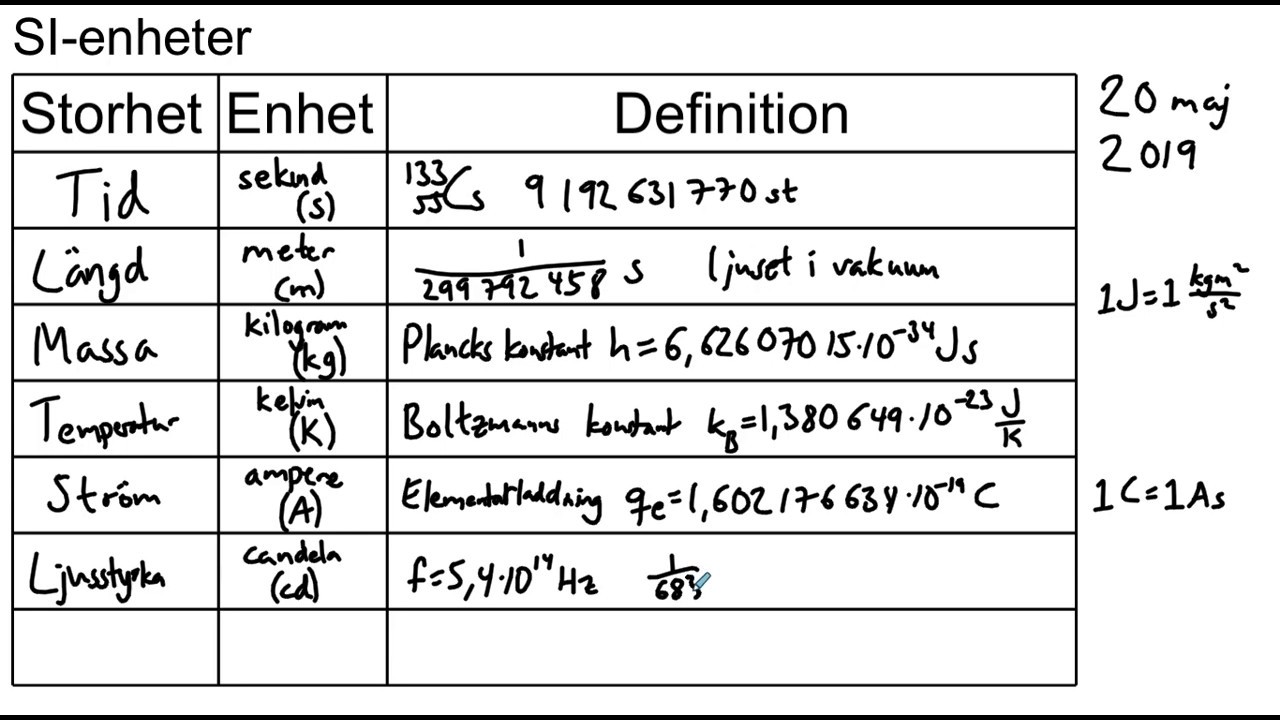 SI-enheter
Storhet Enhet Definition
20 maj
2019
Tid sekund (s) ¹³³₅₅Cs 9 192 631 770 st
Längd meter (m) 1/299 792 458 s ljuset i vakuum
1J=1 kgm²/s²
Massa kilogram (kg) Plancks konstant h=6,626 070 15·10⁻³⁴ Js
Temperatur kelvin (K) Boltzmanns konstant k_B=1,380 649·10⁻²³ J/K
Ström ampere (A) Elementarladdning q_e=1,602 176 634·10⁻¹⁹ C
1C=1As
Ljusstyrka candela (cd) f=5,4·10¹⁴ Hz 1/683